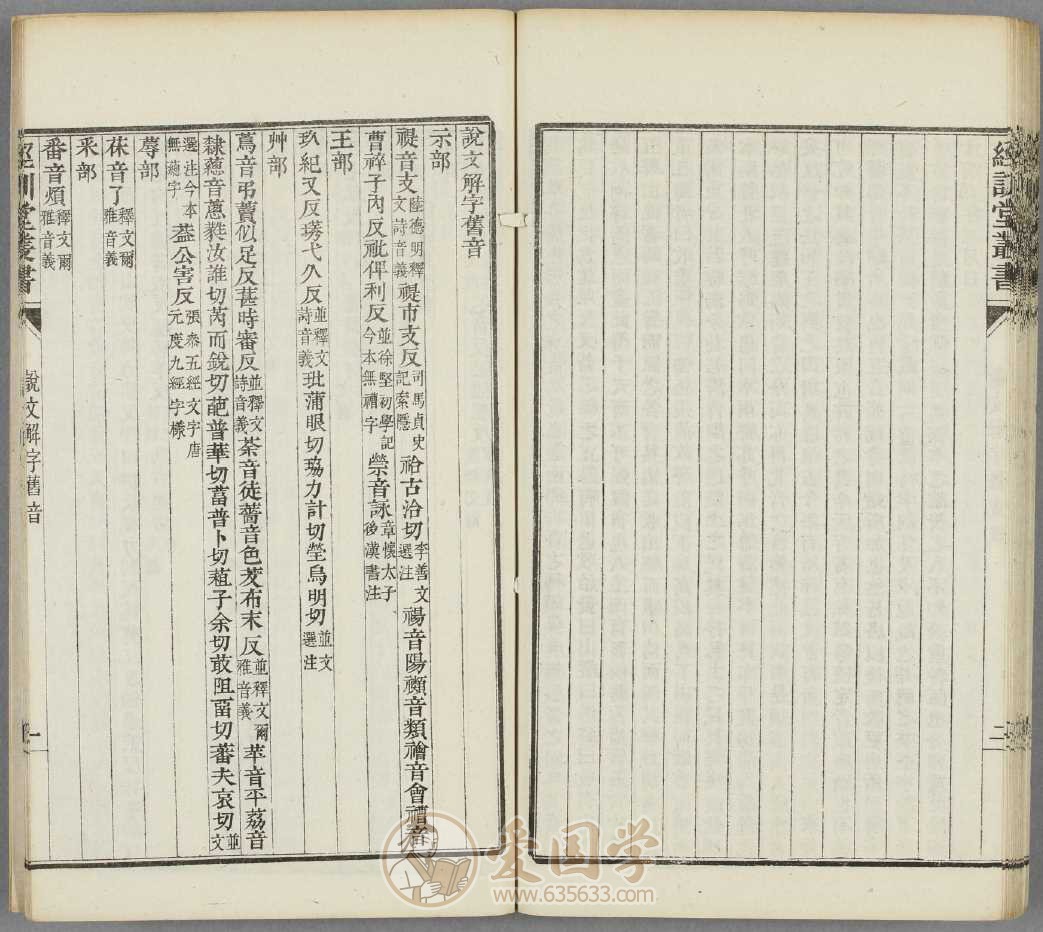 經訓堂叢書
二
說文解字舊音
示部
禔音支陸德明釋文詩音義禔市支反司馬貞史記索隱祫古洽切李善文選注禓音陽䫶音類禬音會禮音
曹禷子內反祉俾利反並徐堅初學記今本無禮字禜音詠章懷太子後漢書注
王部
玖紀又反璓弋久反並釋文詩音義玭蒲眼切珕力計切瑩烏明切並文選注
艸部
蔦音弔藚似足反葚時審反並釋文詩音義荼音徒薔音色茇布末反並釋文爾雅音義苹音平荔音
隸蔥音蔥蕤汝誰切芮而銳切葩普華切菩普卜切葅子余切菆阻留切蕃夫袁切並文
選注今本無蔥字葢公害反張參五經文字唐元度九經字樣
蓐部
茠音了釋文爾雅音義
釆部
番音煩釋文爾雅音義
經訓堂叢書
說文解字舊音
一
爱国学
www.635633.com